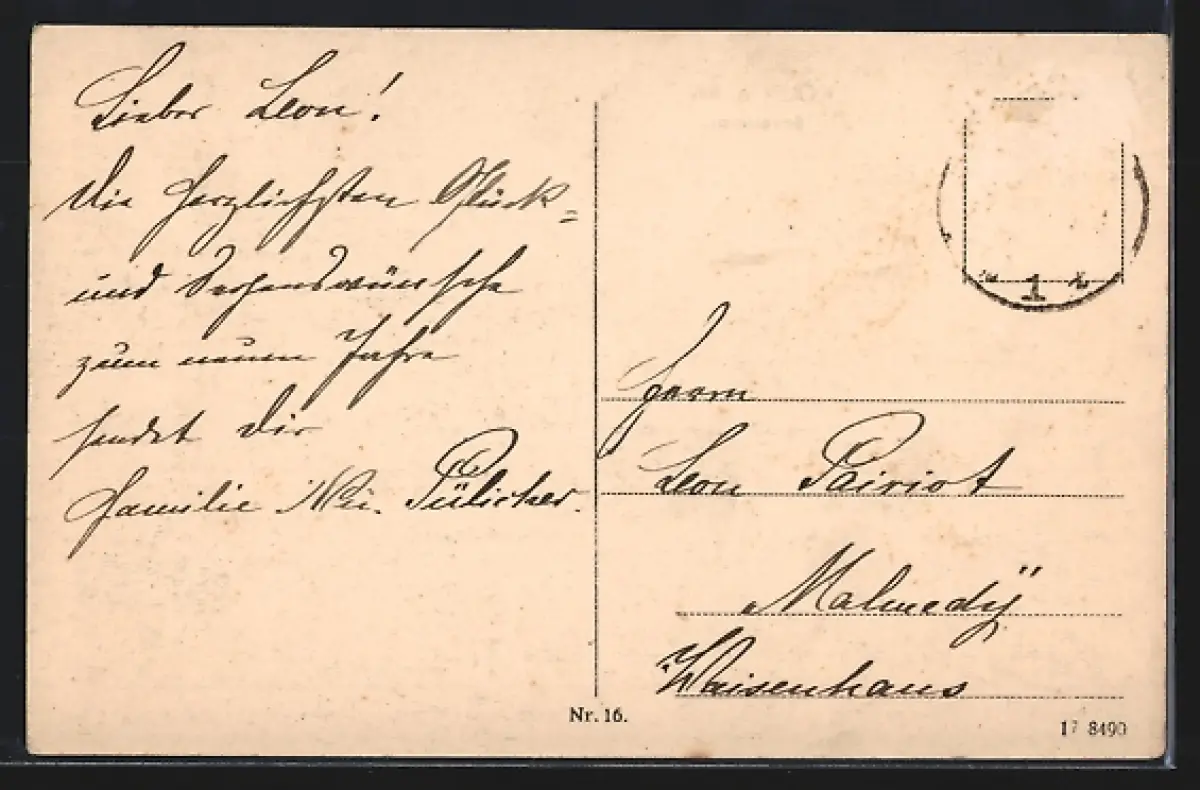 Lieber Leon!
Die herzlichsten Glück=
und Segenswünsche
zum neuen Jahre
sendet Dir
Familie Pülicher.
Herrn
Leon Pairiot
Malmedÿ
Waisenhaus
1
Nr. 16.
17 8490